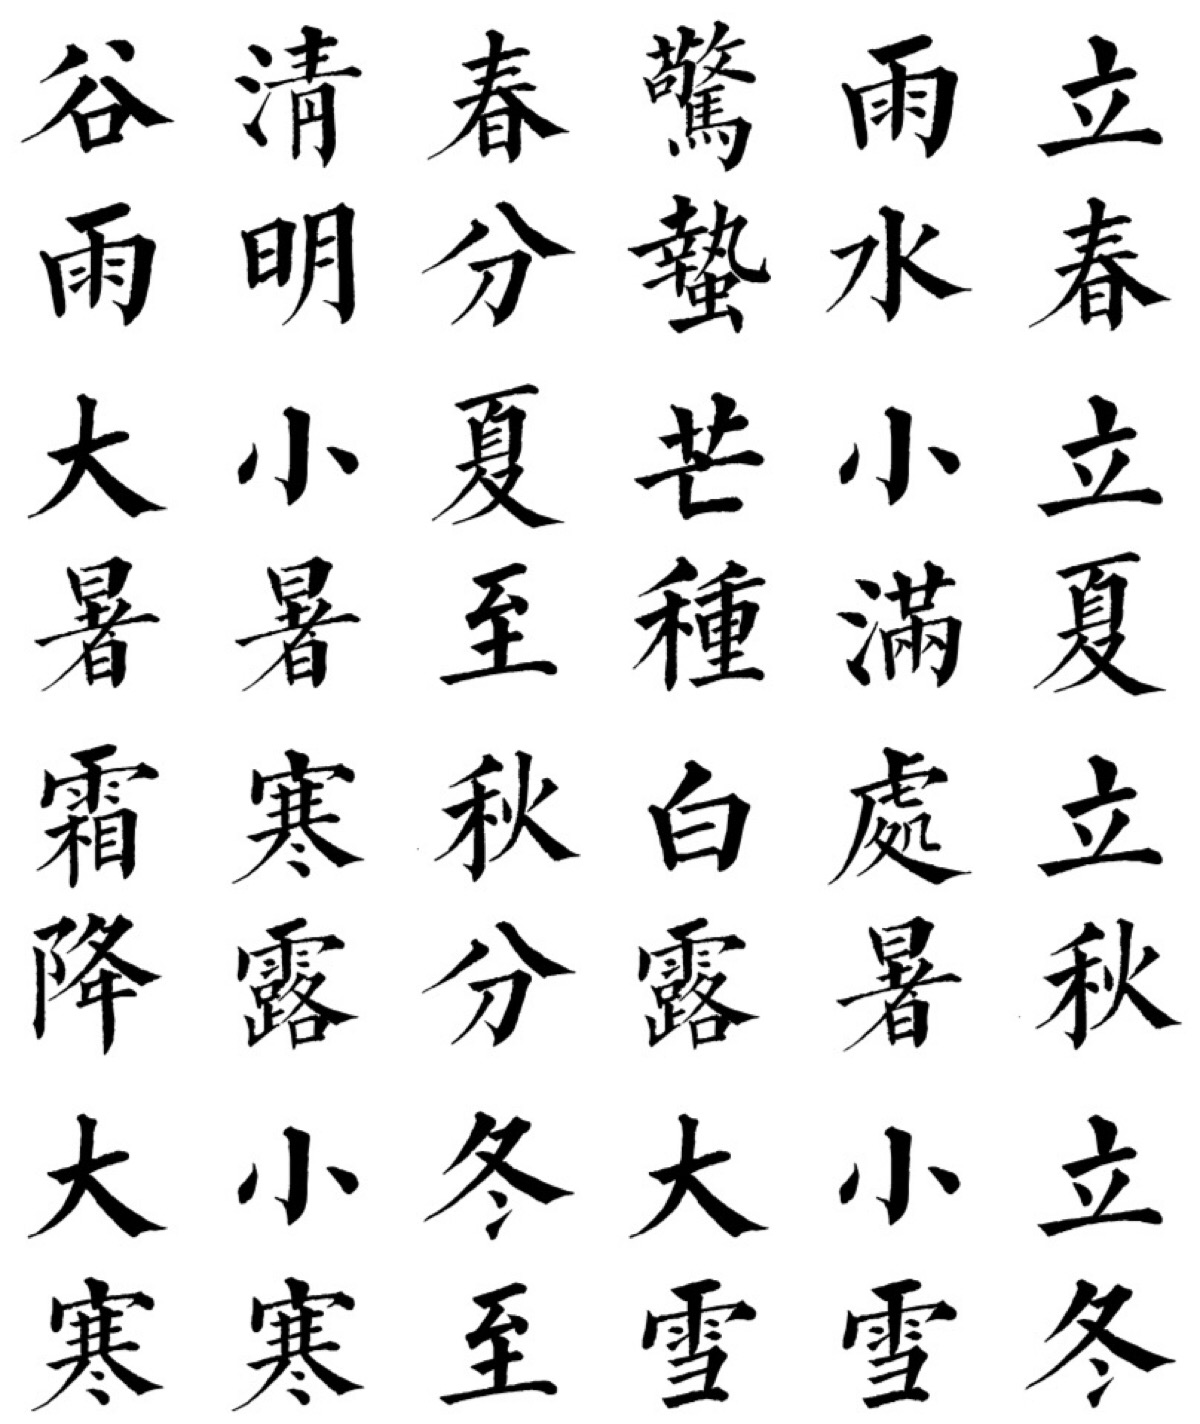 立春
雨水
驚蟄
春分
清明
谷雨
立夏
小滿
芒種
夏至
小暑
大暑
立秋
處暑
白露
秋分
寒露
霜降
立冬
小雪
大雪
冬至
小寒
大寒